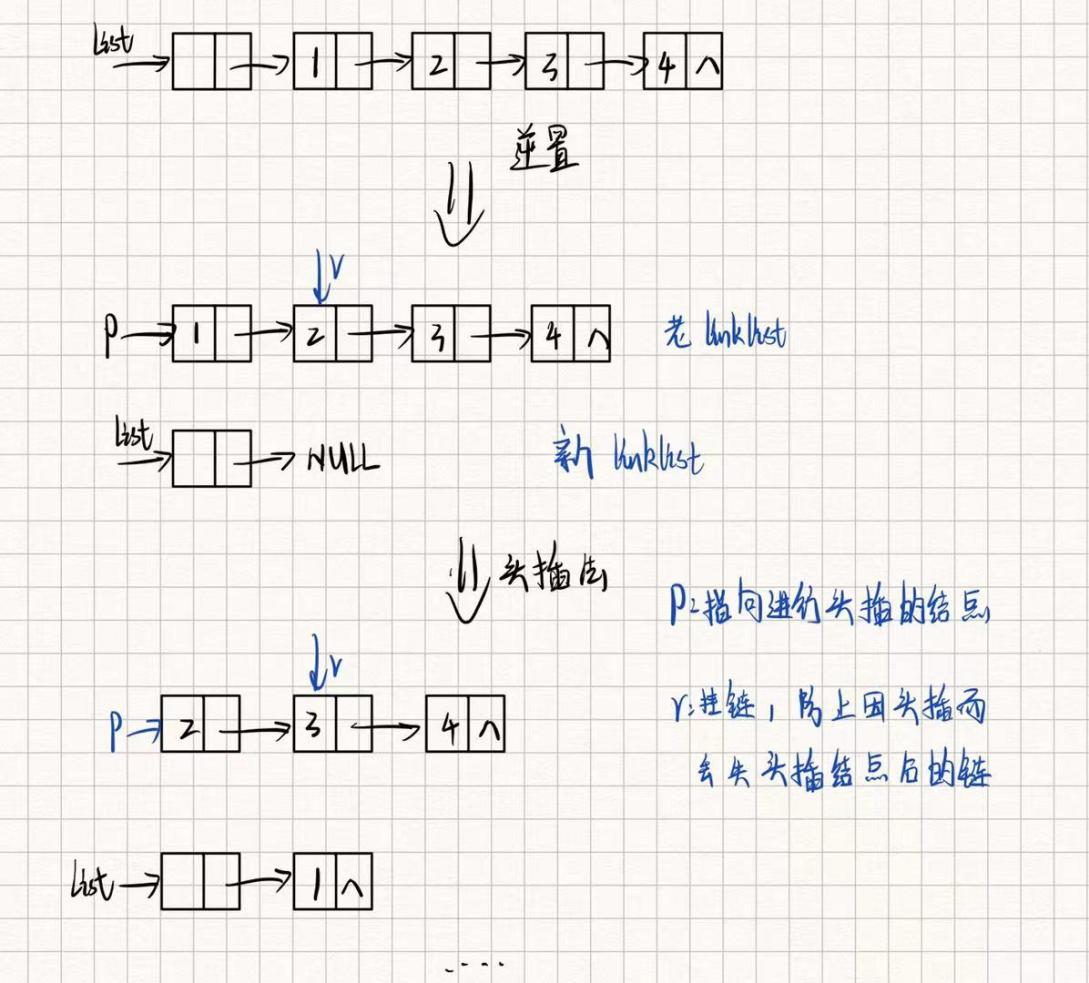 List
1 2 3 4 ∧
逆置
r
P 1 2 3 4 ∧ 老 linklist
List NULL 新 linklist
头插法
P:指向进行头插的结点
r
P 2 3 4 ∧
r:挂链,防止因头插而
丢失头插结点后的链
List 1 ∧
....